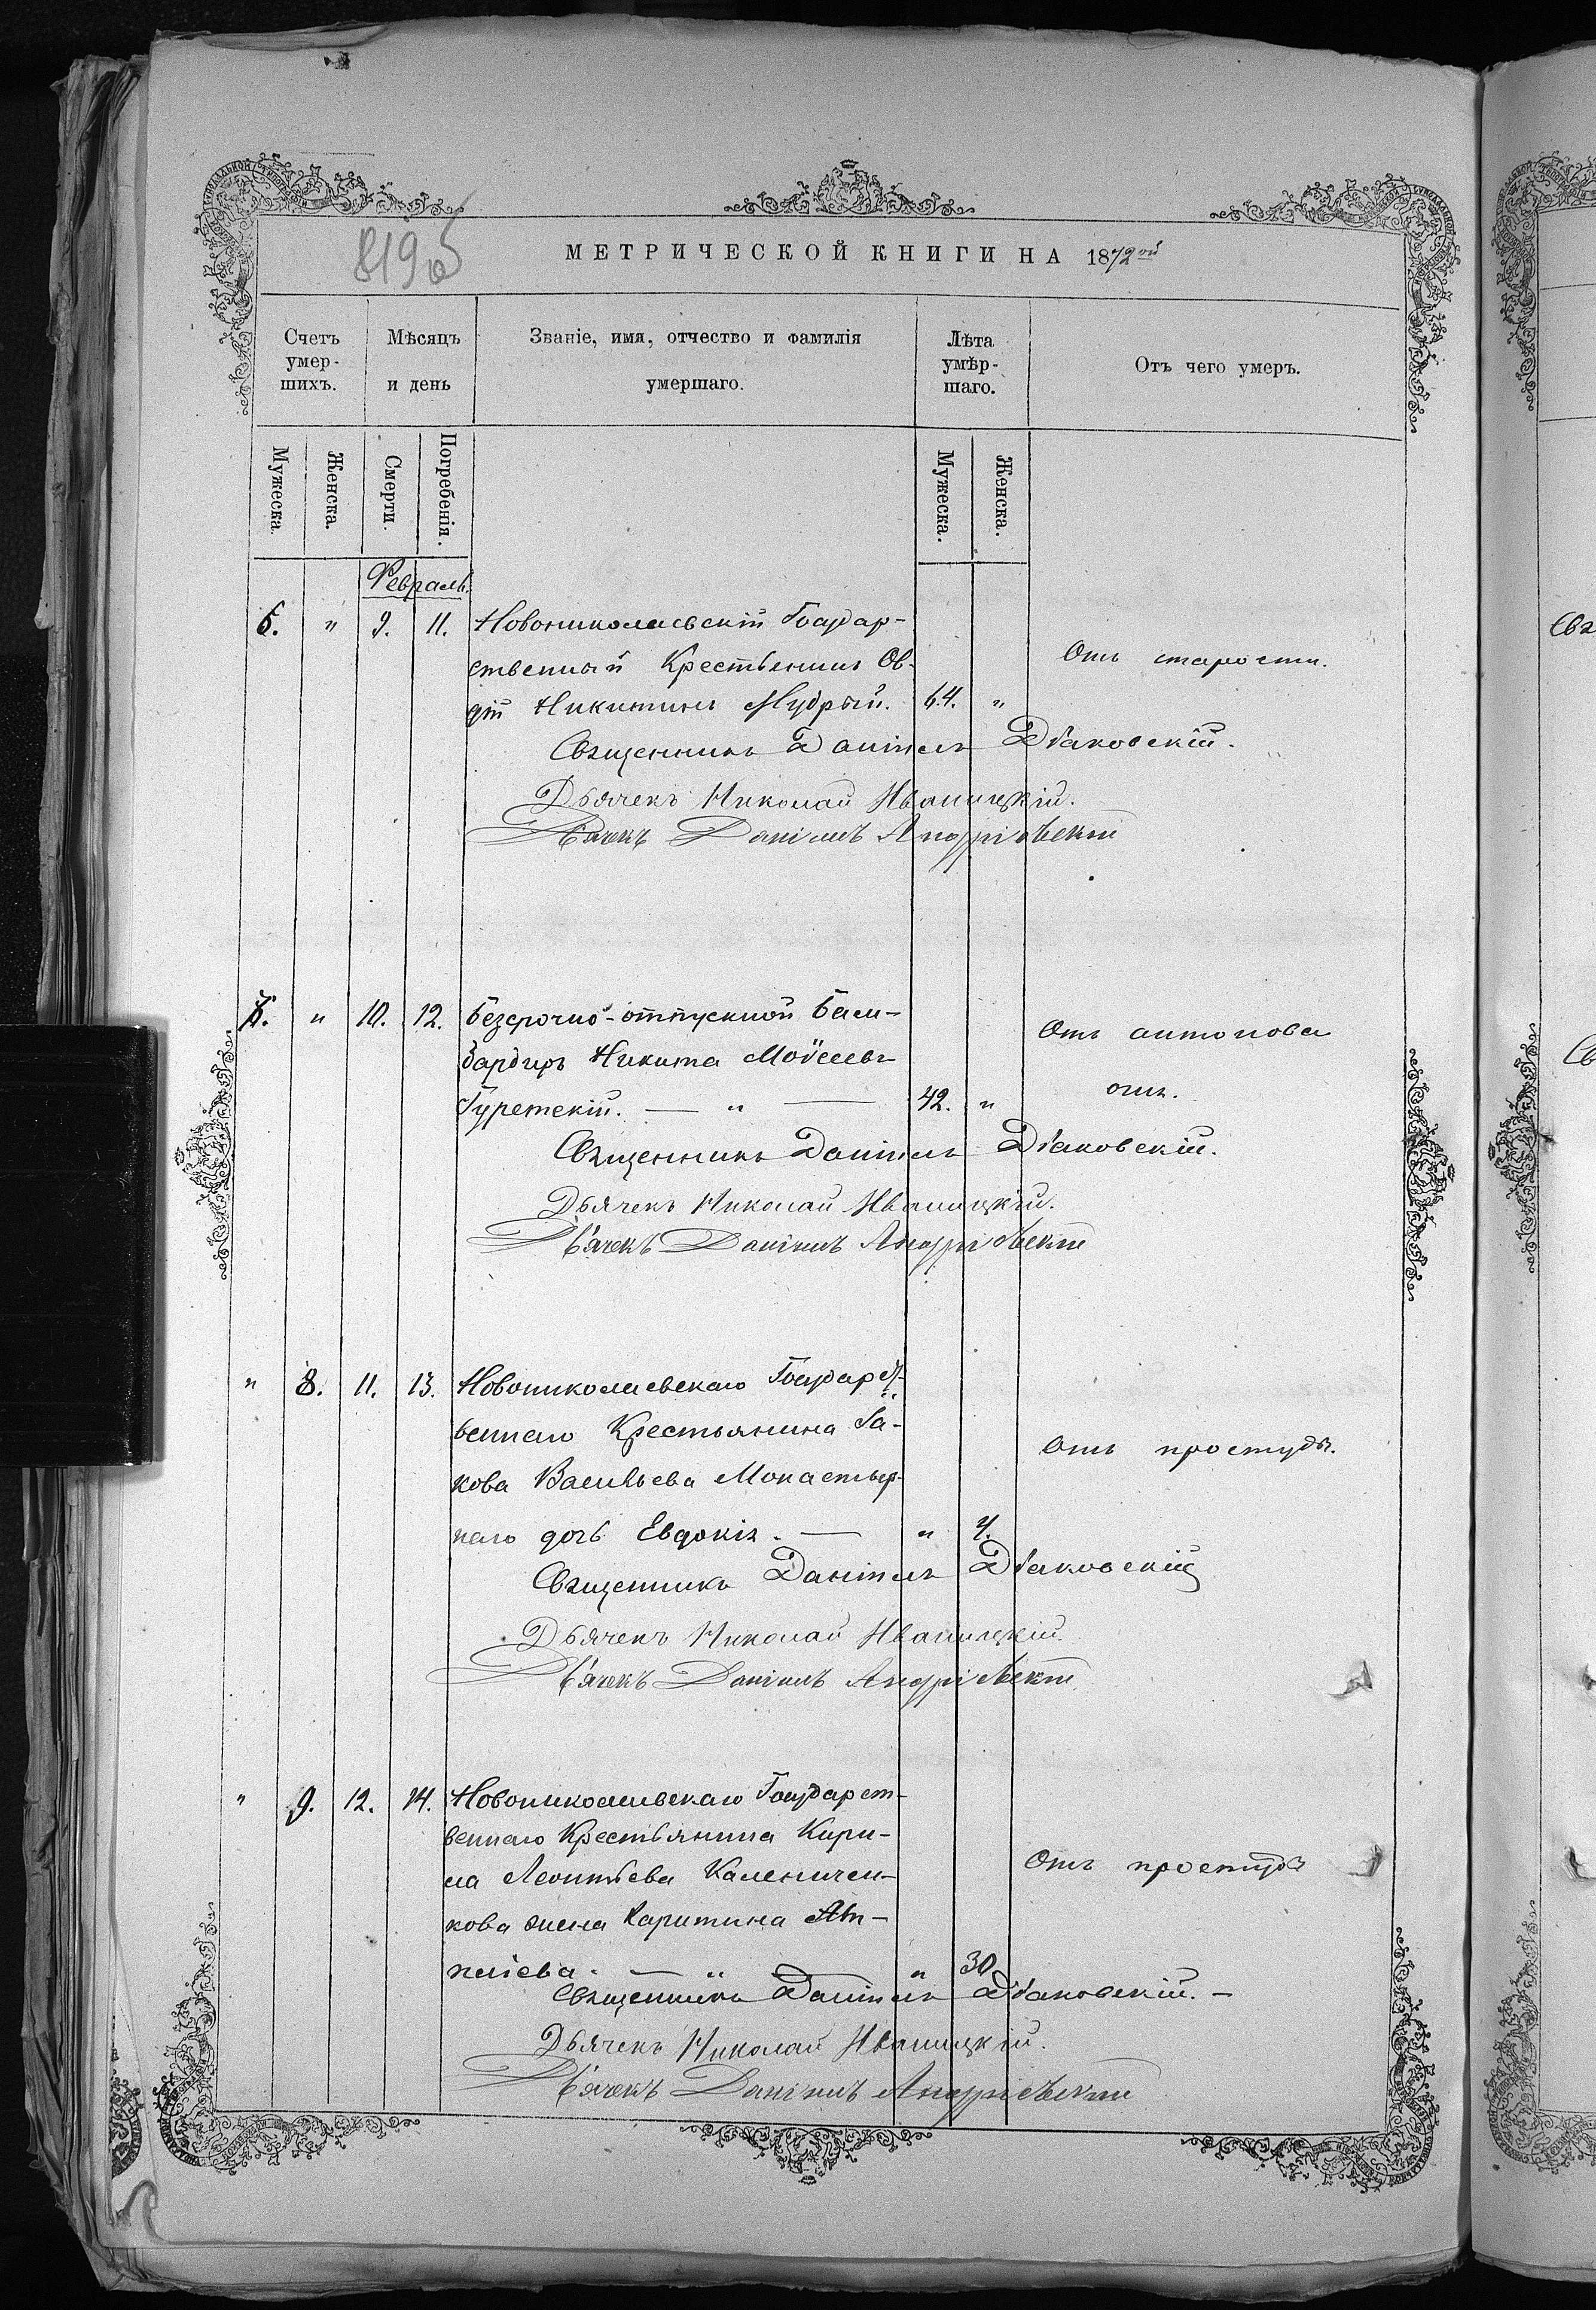 819об
МЕТРИЧЕСКОЙ КНИГИ НА 1872ой
Счетъ умер-шихъ.
Мѣсяцъ и день
Званіе, имя, отчество и фамилія умершаго.
Лѣта умѣр-шаго.
Отъ чего умеръ.
Мужеска.
Женска.
Смерти.
Погребенія.
Мужеска.
Женска.
Февраль.
6. " 9. 11. Новониколаевскій Государ-
ственный Крестьянинъ Ов-
дій Никитинъ Мудрый. 64. "
Отъ старости.
Священникъ Даніилъ Дьяковскій.
Дьячекъ Николай Иваницкій.
Дьячекъ Даніилъ Андріевскій
7. " 10. 12. Безсрочно-отпускной Бом-
бардиръ Никита Моѵсеевъ
Гуретскій. — " — 42. "
Отъ антонова
огн.
Священникъ Даніилъ Дьяковскій.
Дьячекъ Николай Иваницкій.
Дьячекъ Даніилъ Андріевскій
" 8. 11. 13. Новониколаевскаго Государст-
веннаго Крестьянина Іа-
кова Васильева Монастыр-
наго дочь Евдокія. — " 4.
Отъ простуды.
Священникъ Даніилъ Дьяковскій
Дьячекъ Николай Иваницкій.
Дьячекъ Даніилъ Андріевскій
" 9. 12. 14. Новониколаевскаго Государст-
веннаго Крестьянина Кири-
ла Леонтьева Каленичен-
кова жена Харитина
— " — " 30
Отъ простуды
Священникъ Даніилъ Дьяковскій. —
Дьячекъ Николай Иваницкій.
Дьячекъ Даніилъ Андріевскій